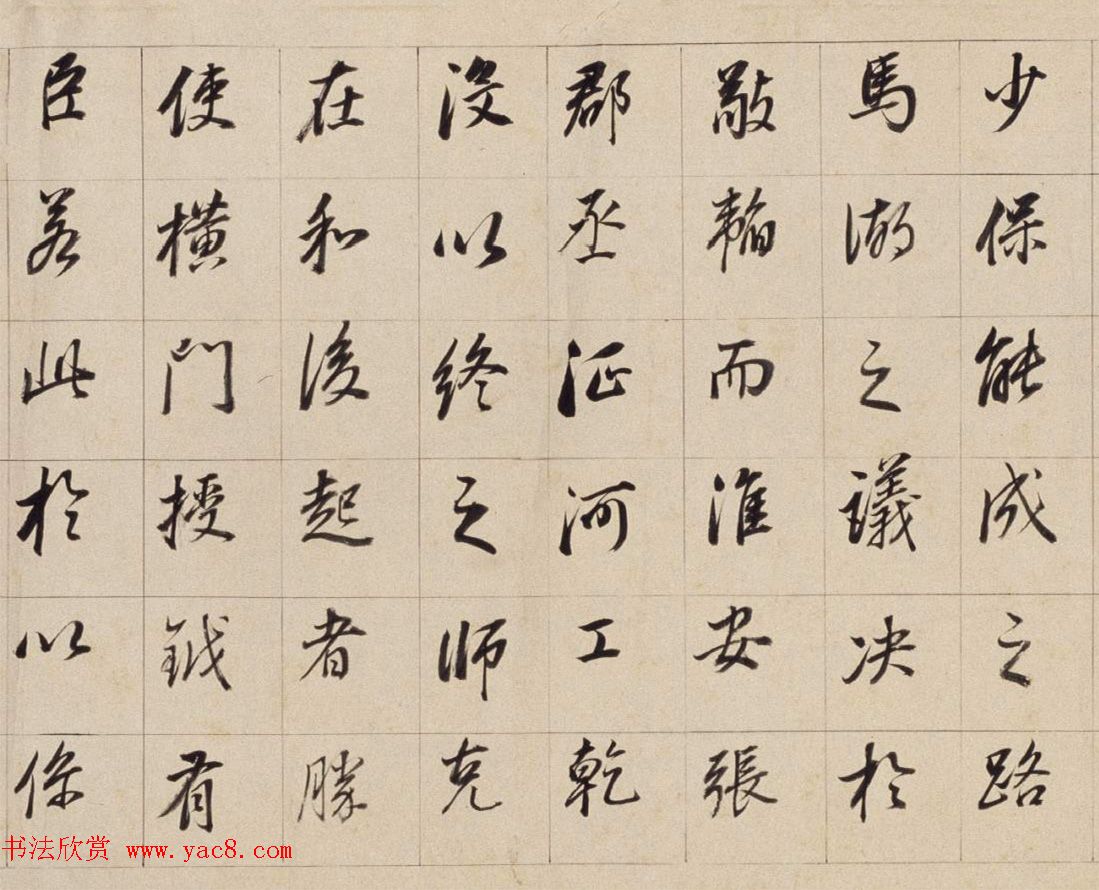 少保能成之路
馬湖之議决於
而淮安張
郡丞河工乾
没以終之師克
在和後起者勝
使橫門授鉞有
臣若此於以保
书法欣赏 www.yac8.com